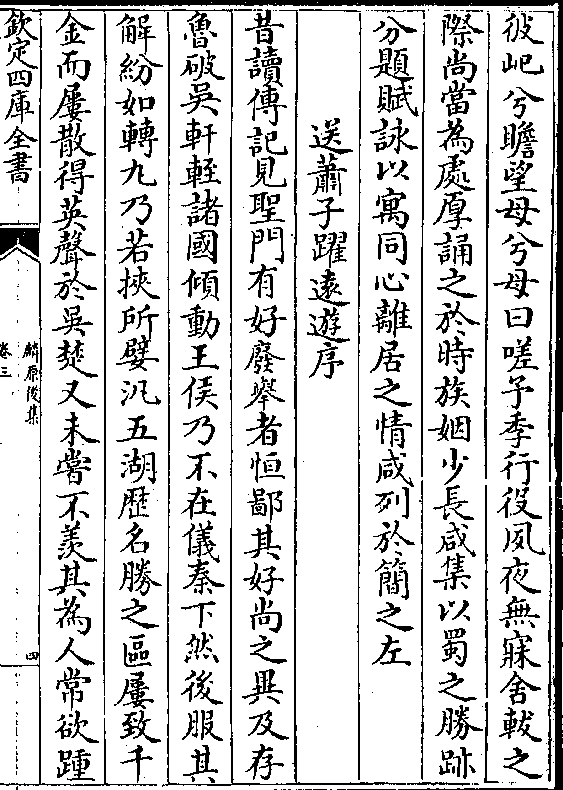 彼屺兮瞻望母兮母曰嗟予季行役夙夜無寐舍軷之
際尚當為處厚誦之於時族姻少長咸集以蜀之勝跡
分題賦詠以寓同心離居之情咸列於簡之左
送蕭子躍遠遊序
昔讀傳記見聖門有好廢舉者恒鄙其好尚之異及存
魯破吳軒輊諸國傾動王侯乃不在儀秦下然後服其
解紛如轉九乃若挾所嬖汎五湖歷名勝之區屢致千
金而屢散得英聲於吳楚又未嘗不羨其為人常欲踵
欽定四庫全書
麟原後集
卷三
四